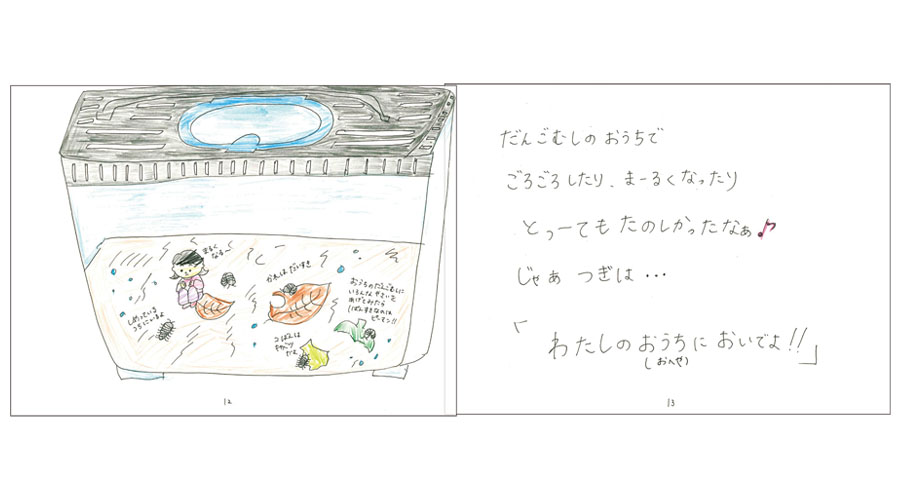 まるく
なる〜
かれはだいすき
おうちのだんごむしに
いろんなやさいを
あげてみたら
1ばんすきなのは
ピーマン!!
しめっている
つちにいるよ
2ばんは
キャベツ
だよ
12
だんごむしの おうちで
ごろごろしたり、まーるくなったり
とっーても たのしかったなぁ♪
じゃぁ つぎは・・・
「わたしのおうちに おいでよ!!」
(おへや)
13